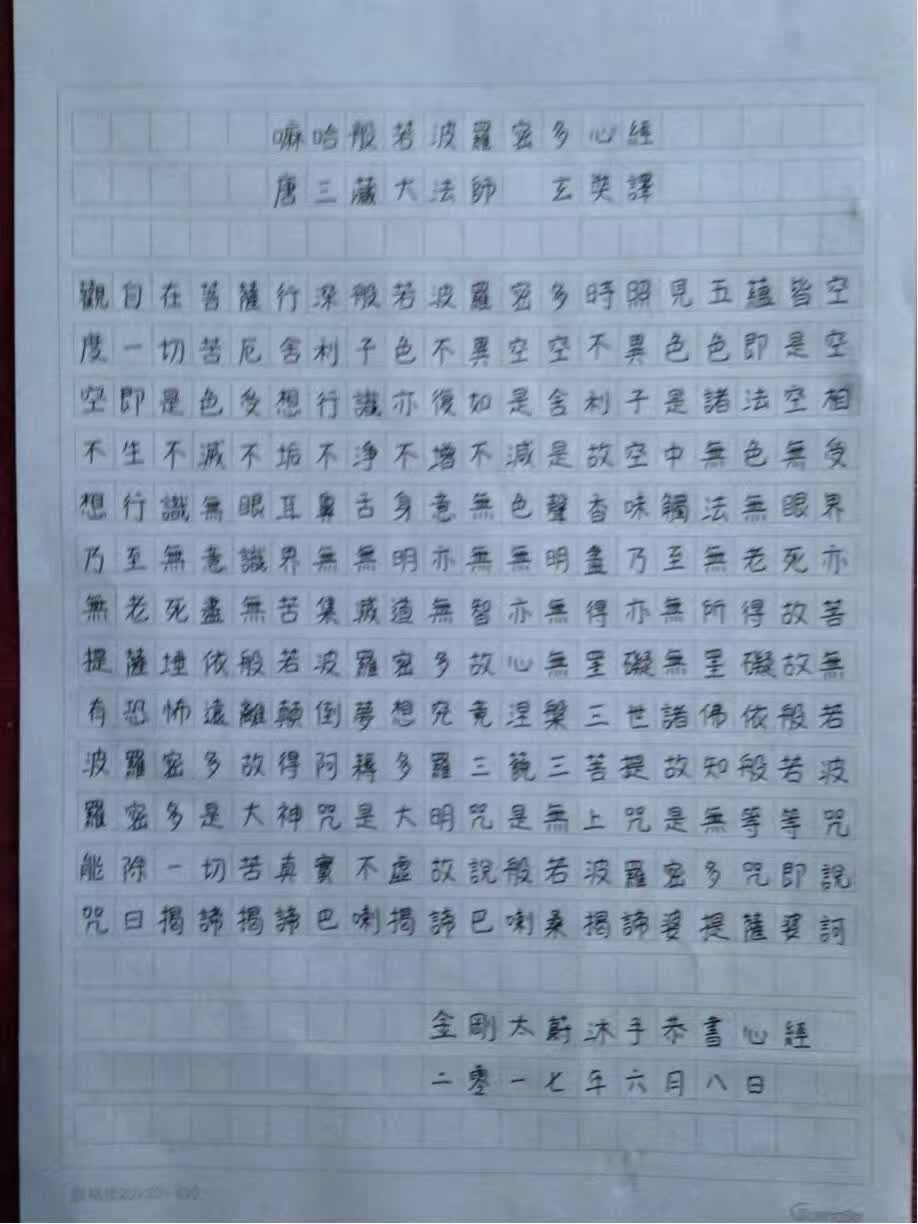 嘛哈般若波羅密多心經
唐三藏大法師　玄奘譯
觀自在菩薩行深般若波羅密多時照見五蘊皆空
度一切苦厄舍利子色不異空空不異色色即是空
空即是色受想行識亦復如是舍利子是諸法空相
不生不滅不垢不淨不增不減是故空中無色無受
想行識無眼耳鼻舌身意無色聲香味觸法無眼界
乃至無意識界無無明亦無無明盡乃至無老死亦
無老死盡無苦集滅道無智亦無得亦無所得故菩
提薩埵依般若波羅密多故心無罣礙無罣礙故無
有恐怖遠離顛倒夢想究竟涅槃三世諸佛依般若
波羅密多故得阿耨多羅三藐三菩提故知般若波
羅密多是大神咒是大明咒是無上咒是無等等咒
能除一切苦真實不虛故說般若波羅密多咒即說
咒曰揭諦揭諦巴喇揭諦巴喇桑揭諦婆提薩婆訶
金剛太蔚沐手恭書心經
二零一七年六月八日